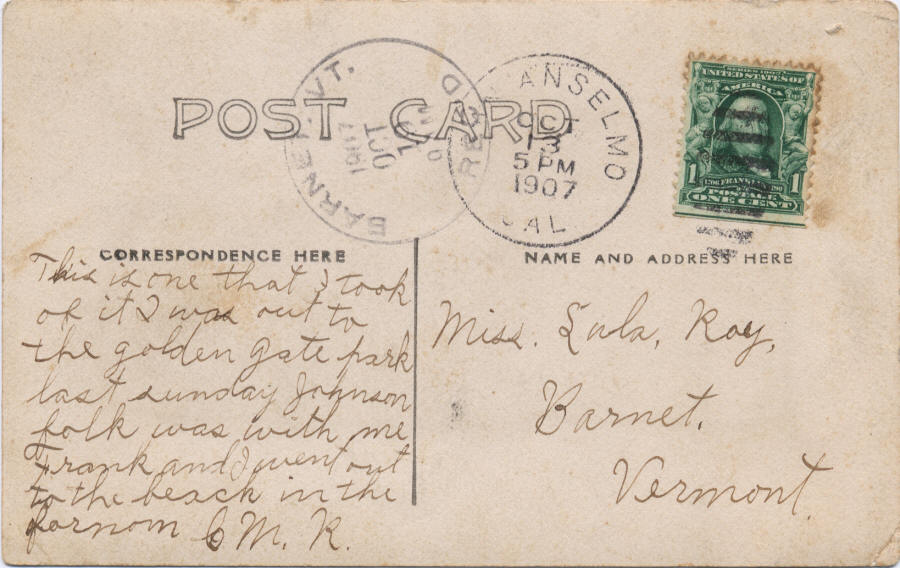 POST CARD
BARNET, VT.
OCT
1907
REC'D
ANSELMO
OCT
13
5 PM
1907
CAL
SERIES 1902
UNITED STATES OF
AMERICA
1 FRANKLIN 1
POSTAGE
ONE CENT
CORRESPONDENCE HERE
This is one that I took
of it I was out to
the golden gate park
last sunday Johnson
folk was with me
Frank and I went out
to the beach in the
fornom C M. R.
NAME AND ADDRESS HERE
Miss. Lula, Roy,
Barnet.
Vermont.